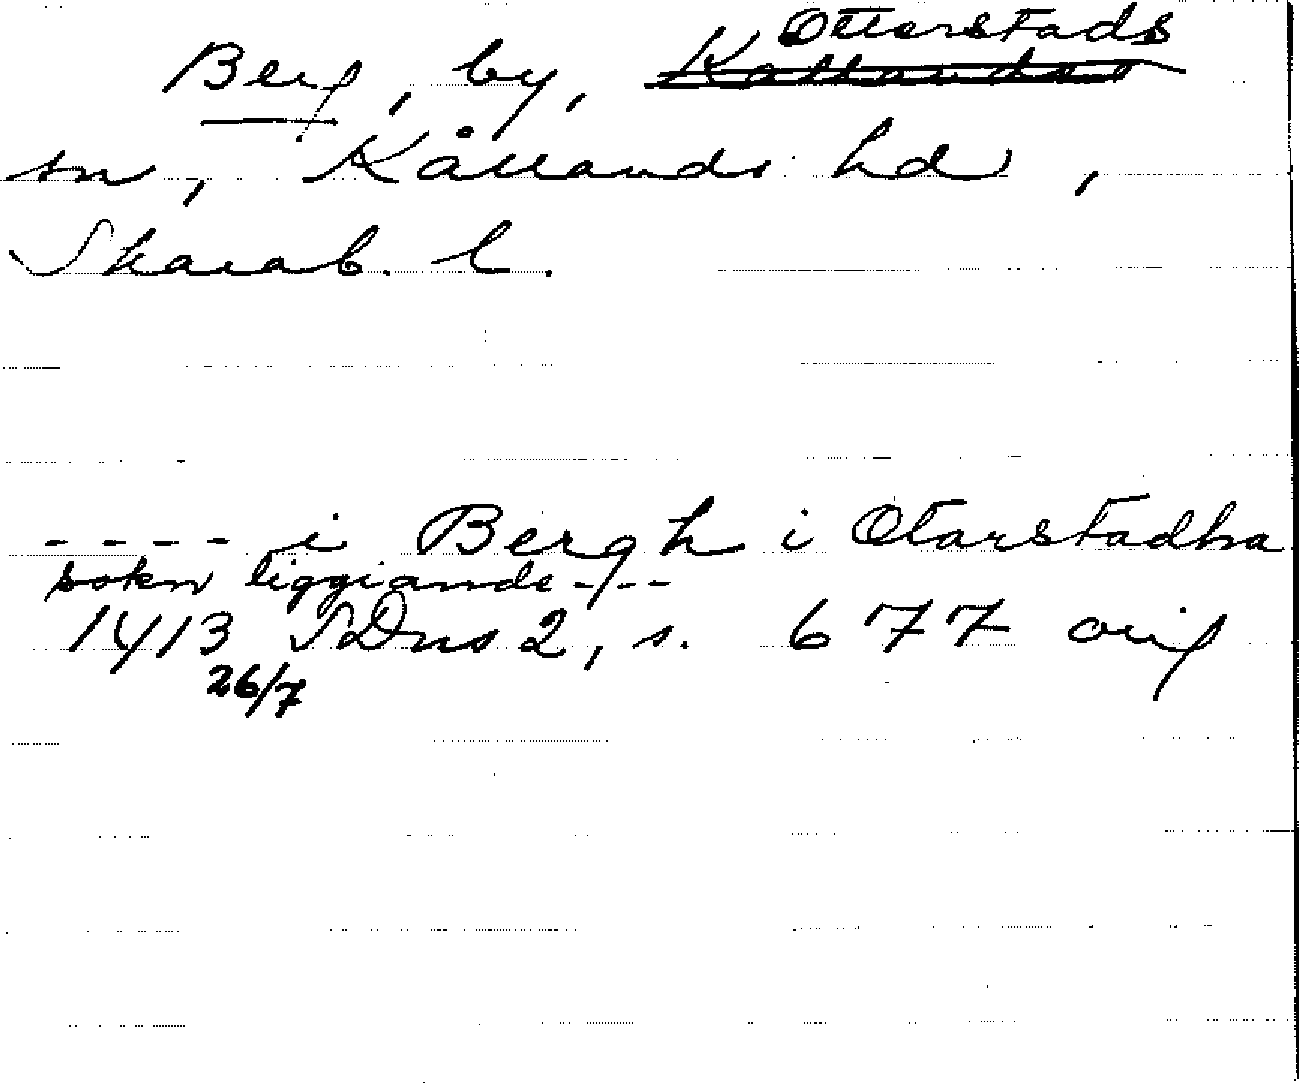 Berg, by, Otterstads
sn, Kållands hd,
Skarab. l.
---- i Bergh i Otarstadha
sokn liggiande ---
1413 SDns 2, s. 677 orig
26/7